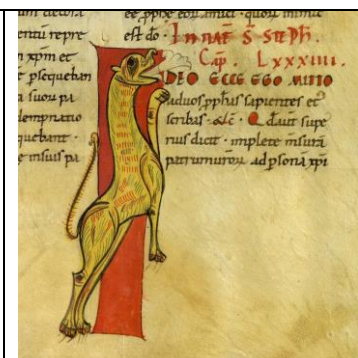 entu repre
n xpm et
c psequeban
a suoꝝ pa
dempnatio
quebant ·
e msuis pa
est do · In nat S Steph.
Cap. Lxxxiiii.
IDEO ECCE EGO MITTO
aduos pphas sapientes et
scribas · Qd aut supe
rius dicit · implete msura
patrum uroꝝ ad psona xpi